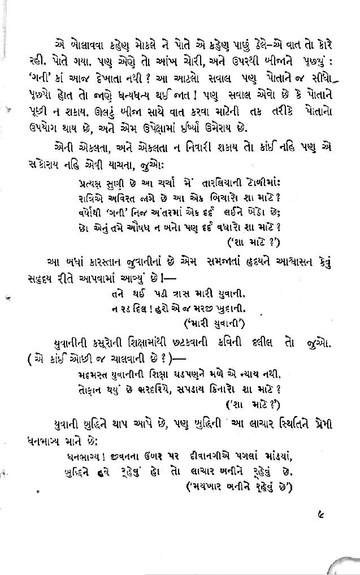 એ બોલાવવા કહેણુ મોકલે ને પોતે એ કહેણુ પાછું ઠેલે–એ વાત તો કોરે
રહી. પોતે ગયા. પણુ એણે તો આંખ ચોરી, અને ઉપરથી બીજાને પૂછ્યું :
‘ગની’ કાં આજ દેખાતા નથી ? આ આટલો સવાલ પણુ પોતાને જ સીધો
પૂછ્યો હોત તો જાણે ધન્યધન્ય થઈ જાત ! પણુ સવાલ એવો છે કે પોતાને
પૂછી ન શકાય. ઊલટું બીજા સાથે વાત કરવા માટેની તક તરીકે પોતાનો
ઉપયોગ થાય છે, અને એમ ઉપેક્ષામાં ઈર્ષ્યા ઉમેરાય છે.
એની એકલતા, અને એકલતા ન નિવારી શકાય તો કાંઈ નહિ પણુ એ
સંકોરાય નહિ એવી યાચના, જુઓ:
પ્રત્યક્ષ સુણી છે આ ચર્ચા મેં તારલિયાની ટોળીમાં:
રાત્રિએ અવિરત જાગે છે આ એક બિચારો શા માટે ?
વર્ષોથી ‘ગની’ નિજ અંતરમાં એક દર્દ લઈને બેઠો છે;
છો એનું તમે ઔષધ ન બનો પણુ દર્દ વધારો શા માટે ?
(‘શા માટે ?’)
આ બધાં કારસ્તાન જુવાનીનાં છે એમ સમજતાં હૃદયને આશ્વાસન કેવું
સહૃદય રીતે આપવામાં આવ્યું છે !—
તને થઈ પડી ત્રાસ મારી યુવાની,
ન રડ દિલ ! હશે એ જ મરજી ખુદાની.
(‘મારી યુવાની’)
યુવાનીની કસૂરોની શિક્ષામાંથી છટકવાની કવિની દલીલ તો જુઓ.
( એ કાંઈ ઓછી જ ચાલવાની છે ? )—
મદમસ્ત યુવાનીની શિક્ષા ઘડપણુને મળે એ ન્યાય નથી.
તોફાન થયું છે ભરદરિયે, સપડાય કિનારો શા માટે ?
(‘શા માટે ?’)
યુવાની બુદ્ધિને થાપ આપે છે, પણુ બુદ્ધિની આ લાચાર સ્થિતિને પ્રેમી
ધનભાગ્ય માને છે:
ધનભાગ્ય ! જીવનના ઉંબર પર દીવાનગીએ પગલાં માંડયાં,
બુદ્ધિને હવે રહેવું હો તો લાચાર બનીને રહેવું છે.
(‘મયખાર બનીને રહેવું છે’)
૯